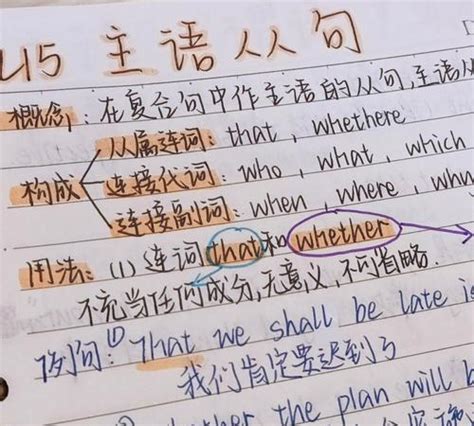 U5 主语从句
概念: 在复合句中作主语的从句,主语从
从属连词: that, whethere
构成 连接代词: who, what, which
连接副词: when, where, why
用法: (1) 连词 that 和 whether
不充当任何成分,无意义,不可省略
例句: ① That we shall be late is
我们肯定要迟到了
the plan will b